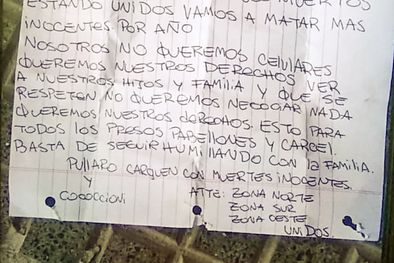 MUERTOS
ESTANDO UNIDOS VAMOS A MATAR MAS
INOCENTES POR AÑO
NOSOTROS NO QUEREMOS CELULARES
QUEREMOS NUESTROS DERECHOS VER
A NUESTROS HIJOS Y FAMILIA Y QUE SE
RESPETEN NO QUEREMOS NEGOCIAR NADA
QUEREMOS NUESTROS DERECHOS. ESTO PARA
TODOS LOS PRESOS PABELLONES Y CARCEL.
BASTA DE SEGUIR HUMILLANDO CON LA FAMILIA.
PULLARO CARGUEN CON MUERTES INOCENTES.
Y
COCOCCIONI
ATTE: ZONA NORTE
ZONA SUR
ZONA OESTE
UNIDOS.